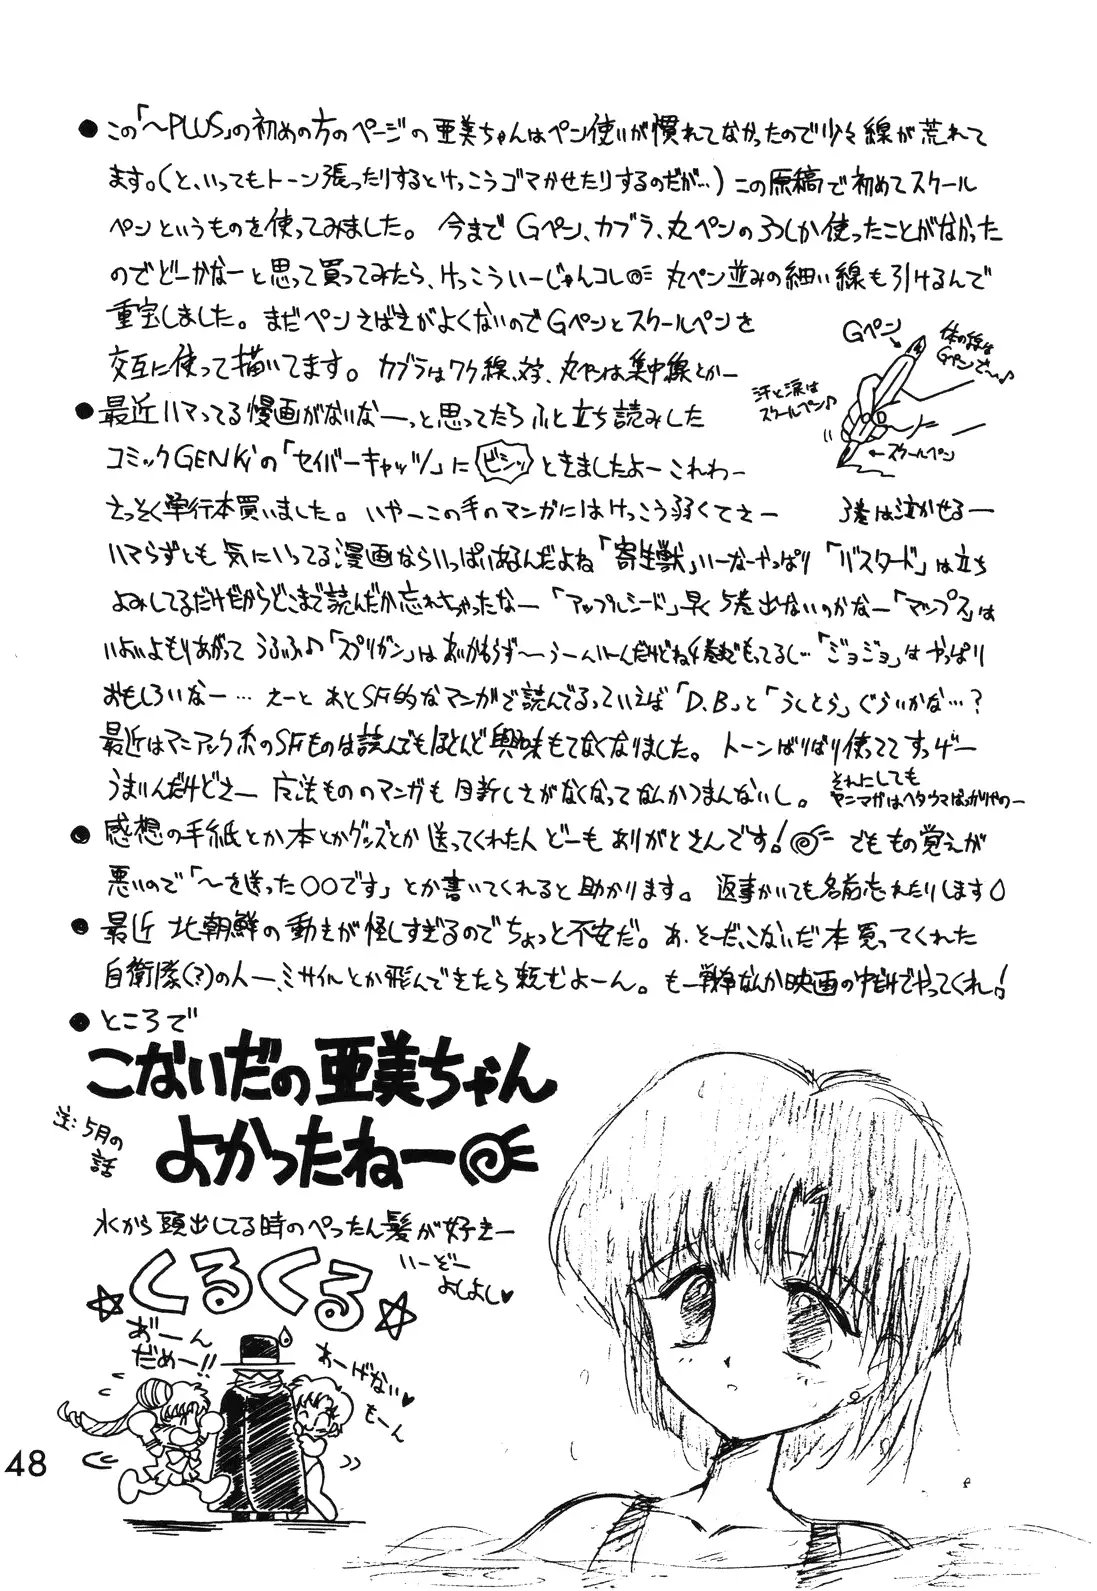 ●この「～PLUS」の初めの方のページの亜美ちゃんはペン使いが慣れてなかったので少々線が荒れて
ます。(と、いってもトーン張ったりするとけっこうゴマかせたりするのだが…)この原稿で初めてスクール
ペンというものを使ってみました。今までGペン、カブラ、丸ペンの3つしか使ったことがなかった
のでどーかなーと思って買ってみたら、けっこういーじゃんコレ 丸ペン並みの細い線も引けるんで
重宝しました。まだペンさばきがよくないのでGペンとスクールペンを
交互に使って描いてます。カブラはワク線、文字、丸ペンは集中線とかー
Gペン
体の線は
Gペンで～♪
汗と涙は
スクールペン♪
←スクールペン
●最近ハマってる漫画がないなーっと思ってたらふと立ち読みした
コミックGENKiの「セイバーキャッツ」にビシッときましたよーこれわー
さっそく単行本買いました。いやーこの手のマンガにはけっこう弱くてさー 3巻は泣かせるー
ハマらずとも気にいってる漫画ならいっぱいあるんだよね「寄生獣」いーなーやっぱり「バスタード」は立ち
よみしてるだけだからどこまで読んだか忘れちゃったなー「アップルシード」早く5巻出ないのかなー「マップス」は
いよいよもりあがって うふふ♪「スプリガン」はあいかわらず～うーんいーんだけどね4巻までもってるし…「ジョジョ」はやっぱり
おもしろいなー…えーと あとSF的なマンガで読んでるっていえば「D.B」と「うしとら」ぐらいかな…?
最近はマニアック系のSFものは読んでもほとんど興味もてなくなりました。トーンばりばり使っててすっげー
うまいんだけどさー 魔法もののマンガも目新しさがなくなってなんかつまんないし。
それにしても
ヤニマガはヘタウマばっかりやのー
●感想の手紙とか本とかグッズとか送ってくれた人どーもありがとさんです! でももの覚えが
悪いので「～を送った○○です」とか書いてくれると助かります。返事かいても名前忘れたりします
●最近 北朝鮮の動きが怪しすぎるのでちょっと不安だ。あ、そーだ、こないだ本買ってくれた
自衛隊(?)の人ー、ミサイルとか飛んできたら頼むよーん。もー戦争なんか映画の中だけでやってくれ!
●ところで
こないだの亜美ちゃん
よかったねー
注:5月の
話
水から頭出してる時のぺったん髪が好きー
いーぞー
よしよし♥
☆くるくる☆
お゛ーん
だめー!!
あーげない♥
もーん
48